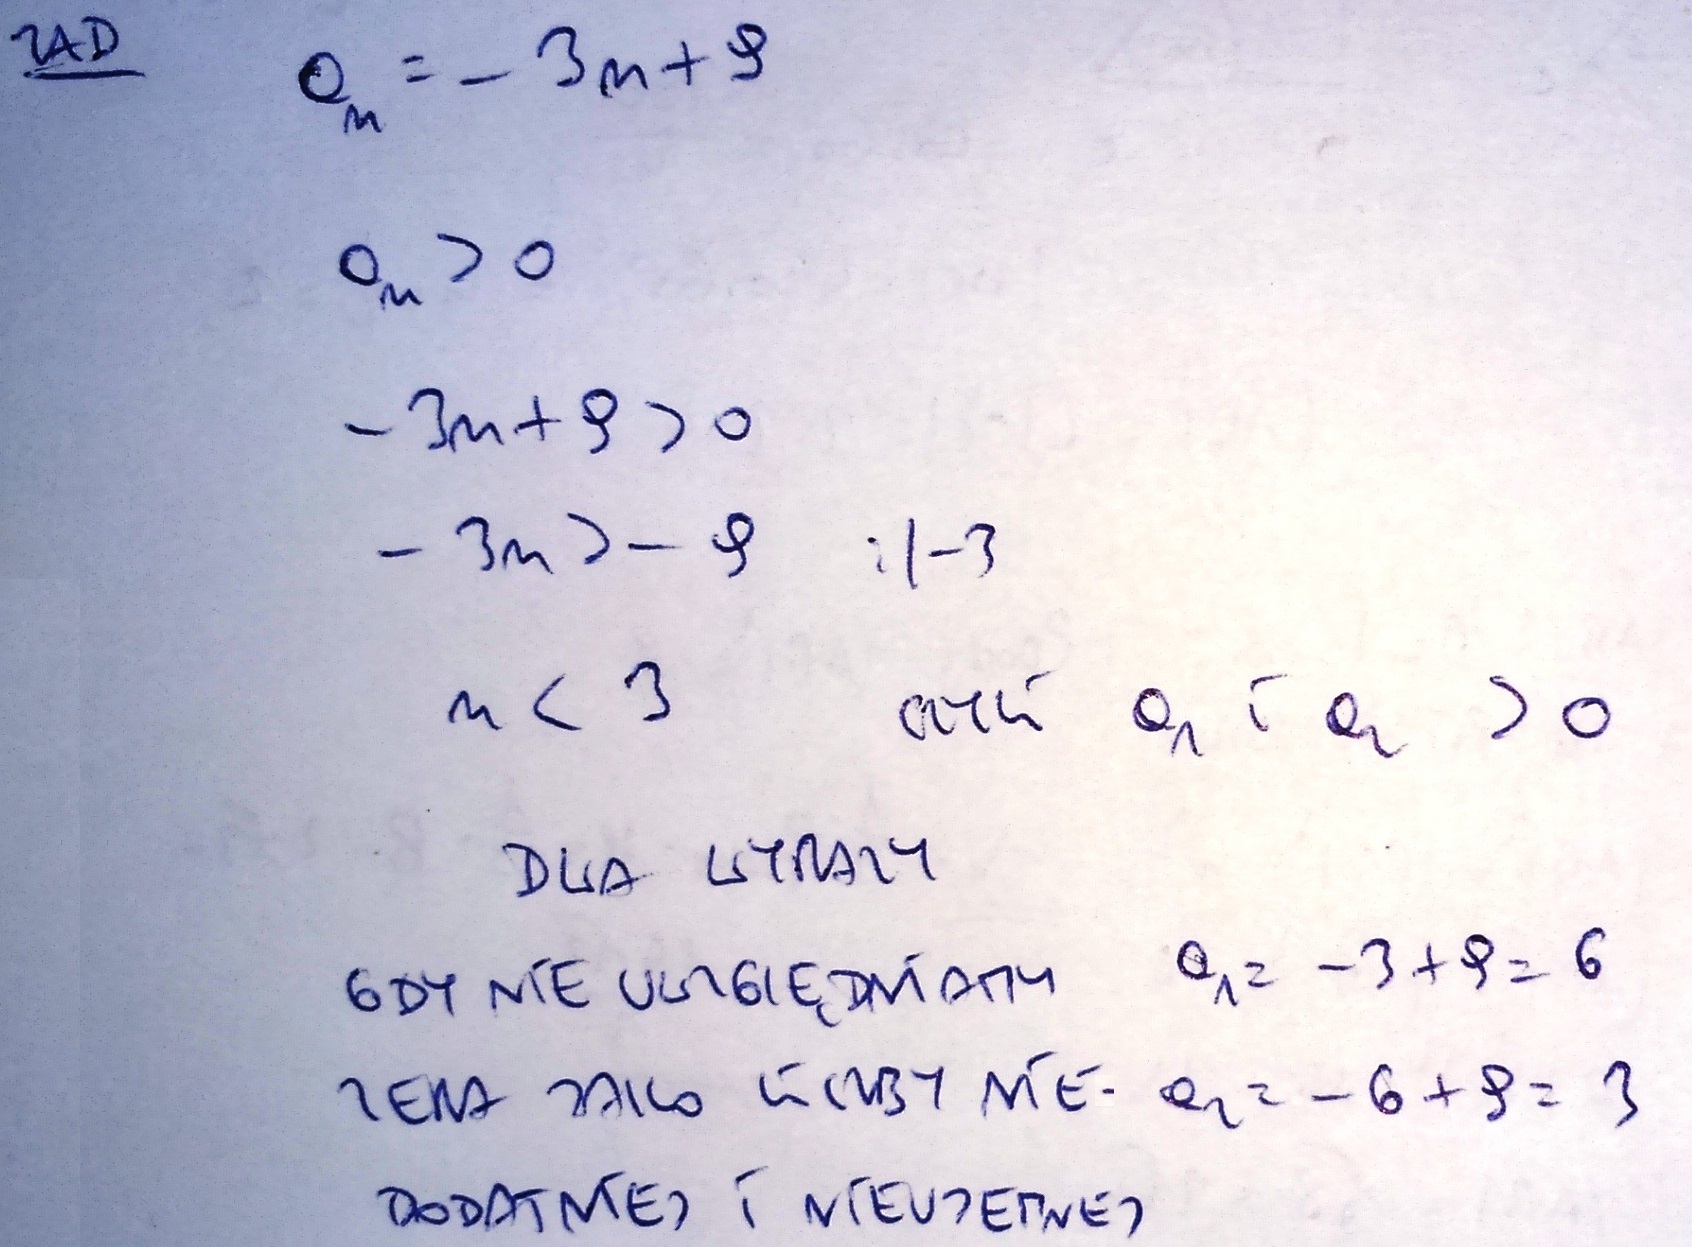 ZAD aₙ = -3n+9
aₙ > 0
-3n+9>0
-3n>-9 :/-3
n < 3 czyli a₁ i a₂ > 0
DWA WYRAZY
GDY NIE UWZGLĘDNIAMY a₁ = -3+9 = 6
ZERA JAKO LICZBY NIE- a₂ = -6+9 = 3
DODATNIEJ I NIEUJEMNEJ